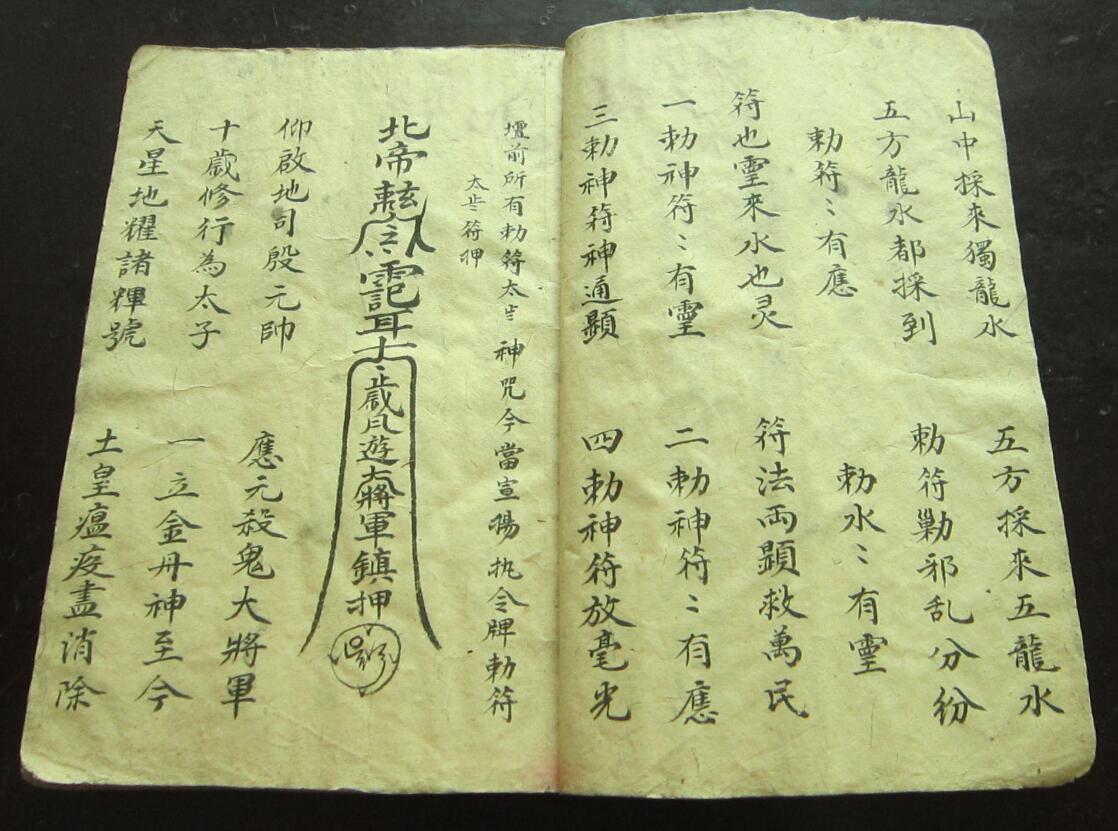 山中採來獨龍水 五方採來五龍水
五方龍水都採到 勅符勦邪乱分紛
勅符〻有應 勅水〻有靈
符也靈來水也灵 符法両顯救萬民
一勅神符〻有靈 二勅神符〻有應
三勅神符神通顯 四勅神符放毫光
壇前所有勅符太歩 神咒今當宣揚 执令牌勅符
太歩符押
北帝勅令
歲月遊大將軍鎮押
仰啟地司殷元帥 應元殺鬼大將軍
十歲修行為太子 一立金丹神至今
天星地耀諸輝號 土皇瘟疫盡消除